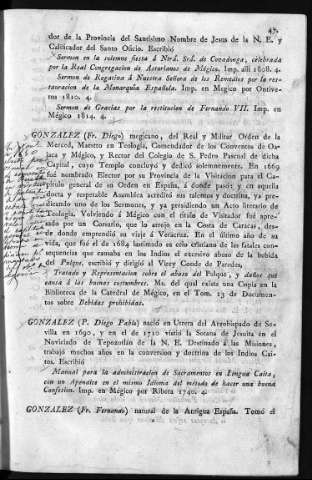 47.
dor de la Provincia del Santisimo Nombre de Jesus de la N. E. y
Calificador del Santo Oficio. Escribió
Sermon en la solemne fiesta á Ntrâ. Srâ. de Covadonga, celebrada
por la Real Congregacion de Asturianos de Mégico. Imp. allí 1808. 4.
Sermon de Rogativa á Nuestra Señora de los Remedios por la res-
tauracion de la Monarquía Española. Imp. en Megico por Ontive-
ros 1810. 4.
Sermon de Gracias por la restitucion de Fernando VII. Imp. en
Mégico 1814. 4.
GONZALEZ (Fr. Diego) megicano, del Real y Militar Orden de la
Merced, Maestro en Teología, Comendador de los Conventos de Oa-
jaca y Mégico, y Rector del Colegio de S. Pedro Pascual de dicha
Capital, cuyo Templo concluyó y dedicó solemnemente. En 1669
fue nombrado Elector por su Provincia de la Visitacion para el Ca-
pítulo general de su Orden en España, á donde pasó: y en aquella
docta y respetable Asamblea acreditó sus talentos y doctrina, ya pre-
dicando uno de los Sermones, y ya presidiendo un Acto literario de
Teología. Volviendo á Mégico con el título de Visitador fue apre-
sado por un Corsario, que lo arrojó en la Costa de Caracas, des-
de donde emprendió su viaje á Veracruz. En el último año de su
vida, que fué el de 1684 lastimado en celo cristiano de las fatales con-
sequencias que tomaba en los Indios el excesivo abuso de la bebida
del Pulque, escribió y dirigió al Virey Conde de Paredes,
Tratado y Representacion sobre el abuso del Pulque, y daños que
causa á las buenas costumbres. Ms. del qual existe una Copia en la
Biblioteca de la Catedral de Mégico, en el Tom. 23 de Documen-
tos sobre Bebidas prohibidas.
GONZALEZ (P. Diego Pablo) nació en Utrera del Arzobispado de Se-
villa en 1690, y en el de 1710 vistió la Sotana de Jesuita en el
Noviciado de Tepozotlan de la N. E. Destinado á las Misiones,
trabajó muchos años en la conversion y doctrina de los Indios Cai-
tas. Escribió
Manual para la administracion de Sacramentos en Lengua Caita,
con un Apendice en el mismo Idioma del método de hacer una buena
Confesion. Imp. en Mégico por Ribera 1740. 4.
GONZALEZ (Fr. Fernando) natural de la Antigua España. Tomó el